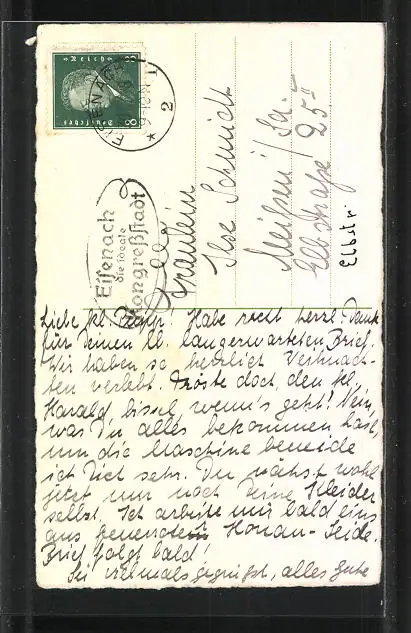 Deutsches
Reich
8
8
EISENACH
9-10 N
* 2
Eisenach
die ideale
Kongreßstadt
Fräulein
Ilse Schmidt
Meißen / Sa.
Elbstraße 25 II
Elbstr.
Liebe kl. Habe recht herzl. Dank
für deinen lb. langerwarteten Brief.
Wir haben so herrlich Weihnach-
ten verlebt. Tröste doch den kl.
Harald bissel, wenn's geht! Nein,
was Du alles bekommen hast,
um die Maschine beneide
ich Dich sehr. Du nähst wohl
jetzt nur noch Deine Kleider
selbst. Ich arbeite mir bald eins
aus Honan-Seide.
Brief folgt bald!
Sei vielmals gegrüßt, alles Gute